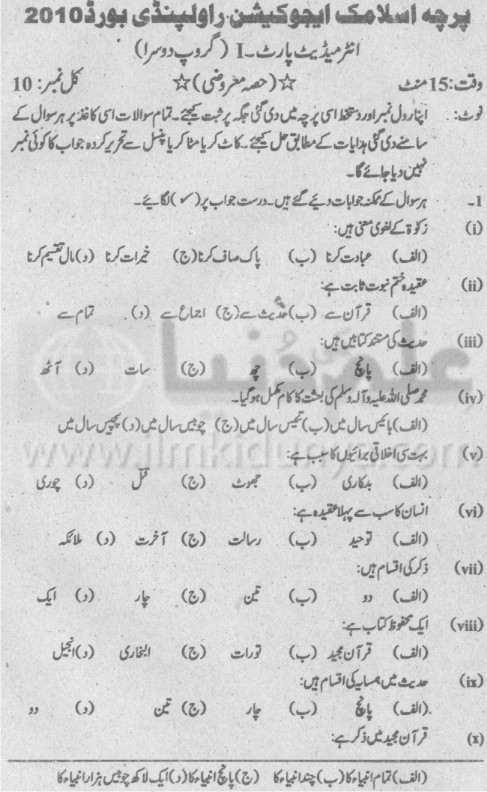 پرچہ اسلامک ایجوکیشن راولپنڈی بورڈ 2010
انٹرمیڈیٹ پارٹ۔I (گروپ دوسرا)
وقت: 15 منٹ ☆(حصہ معروضی)☆ کل نمبر: 10
نوٹ: اپنا رول نمبر اور دستخط اسی پرچہ میں دی گئی جگہ پر ثبت کیجئے۔ تمام سوالات اسی کاغذ پر ہر سوال کے
سامنے دی گئی ہدایات کے مطابق حل کیجئے۔ کاٹ کر یا مٹا کر یا پنسل سے تحریر کردہ جواب کا کوئی نمبر
نہیں دیا جائے گا۔
1۔ ہر سوال کے ممکنہ جوابات دیئے گئے ہیں۔ درست جواب پر (✓) لگائیے۔
(i) زکوٰۃ کے لغوی معنی ہیں:
(الف) عبادت کرنا (ب) پاک صاف کرنا (ج) خیرات کرنا (د) مال تقسیم کرنا
(ii) عقیدہ ختم نبوت ثابت ہے:
(الف) قرآن سے (ب) حدیث سے (ج) اجماع سے (د) تمام سے
(iii) حدیث کی مستند کتابیں ہیں:
(الف) پانچ (ب) چھ (ج) سات (د) آٹھ
(iv) محمد صلی اللہ علیہ وآلہ وسلم کی بعثت کا کام مکمل ہوگیا۔
(الف) بائیس سال میں (ب) تئیس سال میں (ج) چوبیس سال میں (د) پچیس سال میں
(v) بہت سی اخلاقی برائیوں کا سبب ہے:
(الف) بدکاری (ب) جھوٹ (ج) قتل (د) چوری
(vi) انسان کا سب سے پہلا عقیدہ ہے:
(الف) توحید (ب) رسالت (ج) آخرت (د) ملائکہ
(vii) ذکر کی اقسام ہیں:
(الف) دو (ب) تین (ج) چار (د) ایک
(viii) ایک محفوظ کتاب ہے:
(الف) قرآن مجید (ب) تورات (ج) البخاری (د) انجیل
(ix) حدیث میں ہمسایہ کی اقسام ہیں:
(الف) پانچ (ب) چار (ج) تین (د) دو
(x) قرآن مجید میں ذکر ہے:
(الف) تمام انبیاء کا (ب) چند انبیاء کا (ج) پانچ انبیاء کا (د) ایک لاکھ چوبیس ہزار انبیاء کا
علم کی دُنیا
www.ilmkidunya.com